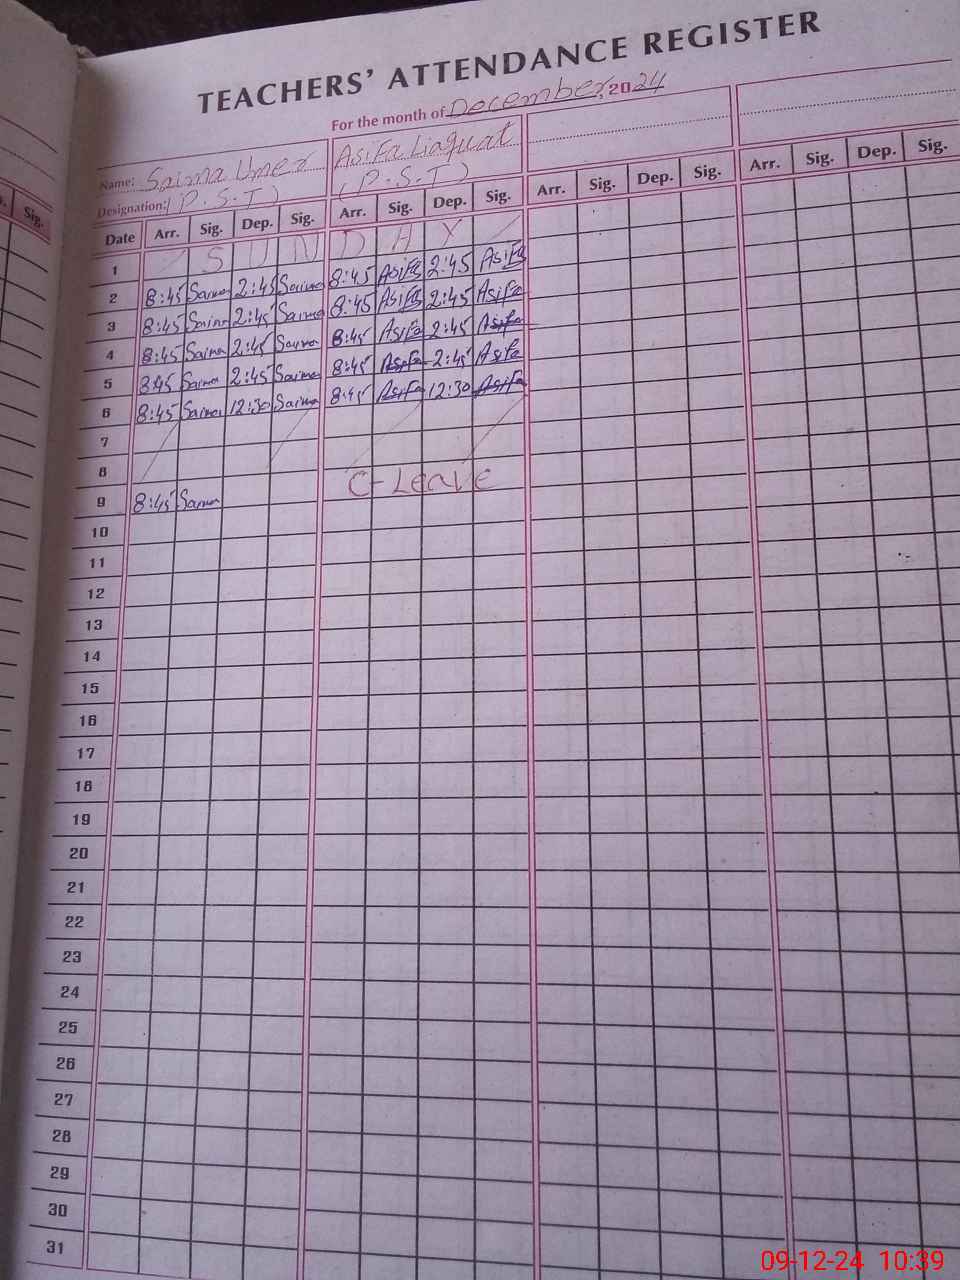 TEACHERS' ATTENDANCE REGISTER
For the month of December, 2024
Name: Saima Umer Asifa Liaquat
Designation: (P.S.T) (P.S.T)
Date Arr. Sig. Dep. Sig. Arr. Sig. Dep. Sig. Arr. Sig. Dep. Sig. Arr. Sig. Dep. Sig.
Sig.
1 S U N D A Y
2 8:45 Saima 2:45 Saima 8:45 Asifa 2:45 Asifa
3 8:45 Saima 2:45 Saima 8:45 Asifa 2:45 Asifa
4 8:45 Saima 2:45 Saima 8:45 Asifa 2:45 Asifa
5 8:45 Saima 2:45 Saima 8:45 Asifa 2:45 Asifa
6 8:45 Saima 12:30 Saima 8:45 Asifa 12:30 Asifa
7
8
9 8:45 Saima C-Leave
10
11
12
13
14
15
16
17
18
19
20
21
22
23
24
25
26
27
28
29
30
31
09-12-24 10:39